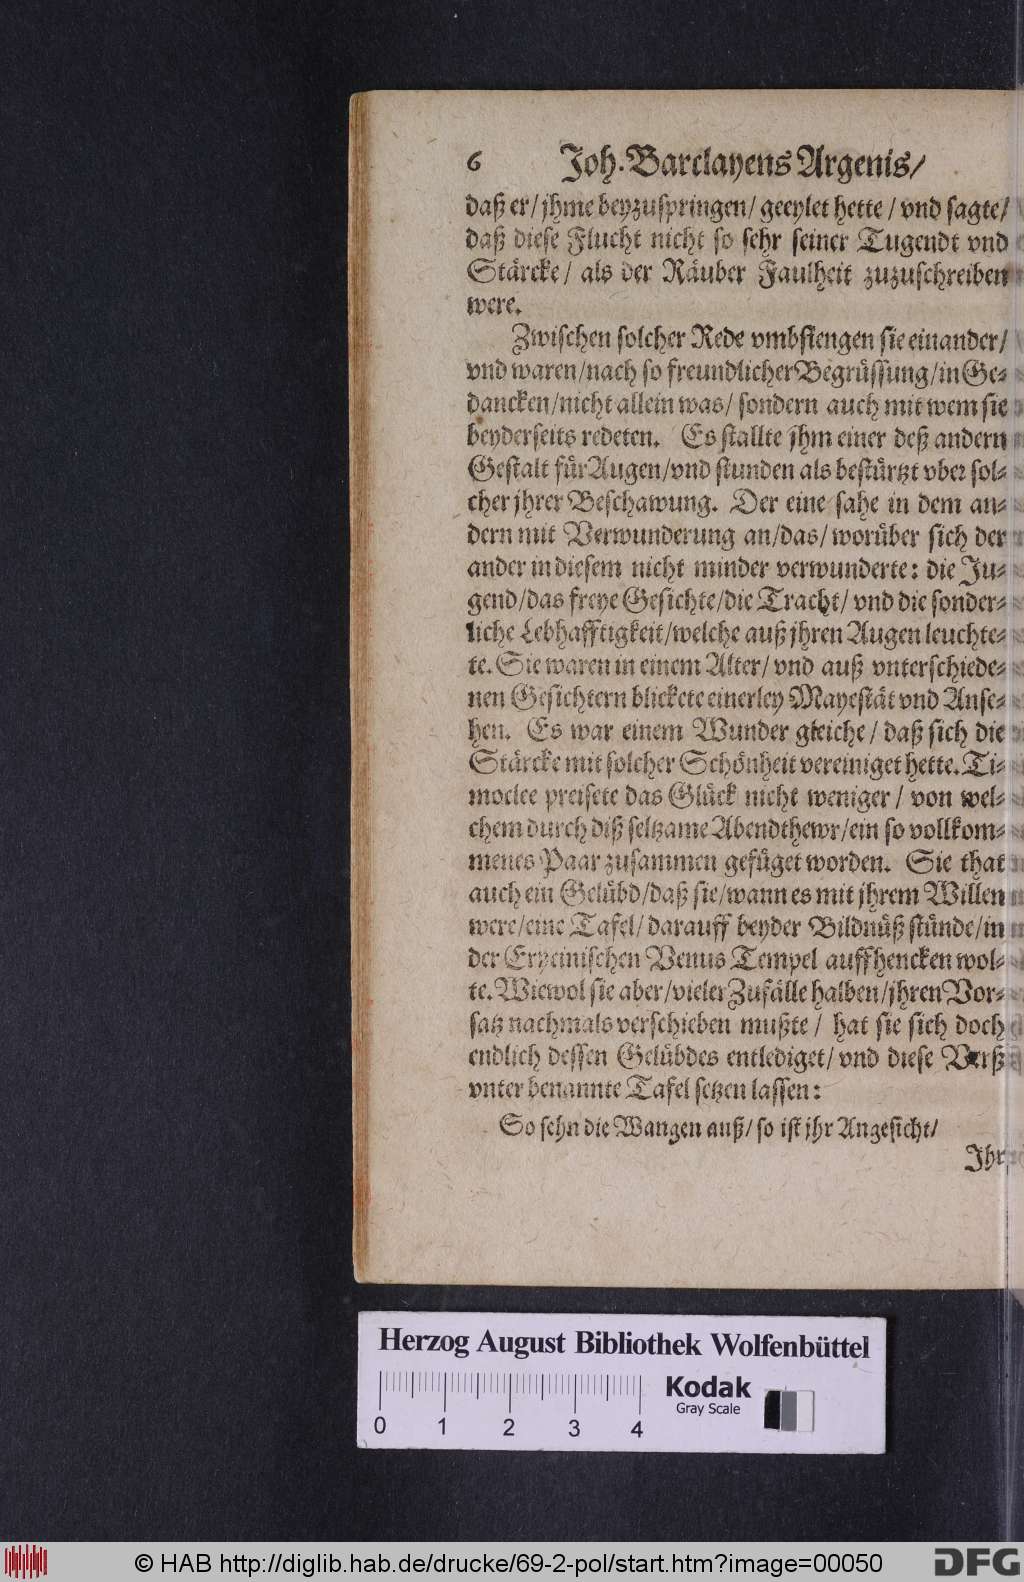 6 Joh. Barclayens Argenis/
daß er/ jhme beyzuspringen/ geeylet hette / vnd sagte/
daß diese Flucht nicht so sehr seiner Tugendt vnd
Stärcke/ als der Räuber Faulheit zuzuschreiben
were.
Zwischen solcher Rede vmbfiengen sie einander/
vnd waren/nach so freundlicher Begrüssung/in Ge-
dancken/nicht allein was/ sondern auch mit wem sie
beyderseits redeten. Es stallte jhm einer deß andern
Gestalt für Augen/vnd stunden als bestürtzt vber sol-
cher jhrer Beschawung. Der eine sahe in dem an-
dern mit Verwunderung an/das/ worüber sich der
ander in diesem nicht minder verwunderte: die Ju-
gend/das freye Gesichte/die Tracht/ vnd die sonder-
liche Lebhafftigkeit/welche auß jhren Augen leuchte-
te. Sie waren in einem Alter/ vnd auß vnterschiede-
nen Gesichtern blickete einerley Mayestät vnd Anse-
hen. Es war einem Wunder gleiche / daß sich die
Stärcke mit solcher Schönheit vereiniget hette. Ti-
moclee preisete das Glück nicht weniger / von wel-
chem durch diß seltzame Abendthewr/ein so vollkom-
menes Paar zusammen gefüget worden. Sie that
auch ein Gelübd/daß sie/wann es mit jhrem Willen
were/eine Tafel/ darauff beyder Bildnüß stünde/in
der Erycinischen Venus Tempel auffhencken wol-
te. Wiewol sie aber/vieler Zufälle halben/jhren Vor-
satz nachmals verschieben mußte / hat sie sich doch
endlich dessen Gelübdes entlediget/ vnd diese Verß
vnter benannte Tafel setzen lassen:
So sehn die Wangen auß/ so ist jhr Angesicht/
Ihr
Herzog August Bibliothek Wolfenbüttel
Kodak
Gray Scale
0 1 2 3 4
© HAB http://diglib.hab.de/drucke/69-2-pol/start.htm?image=00050
DFG